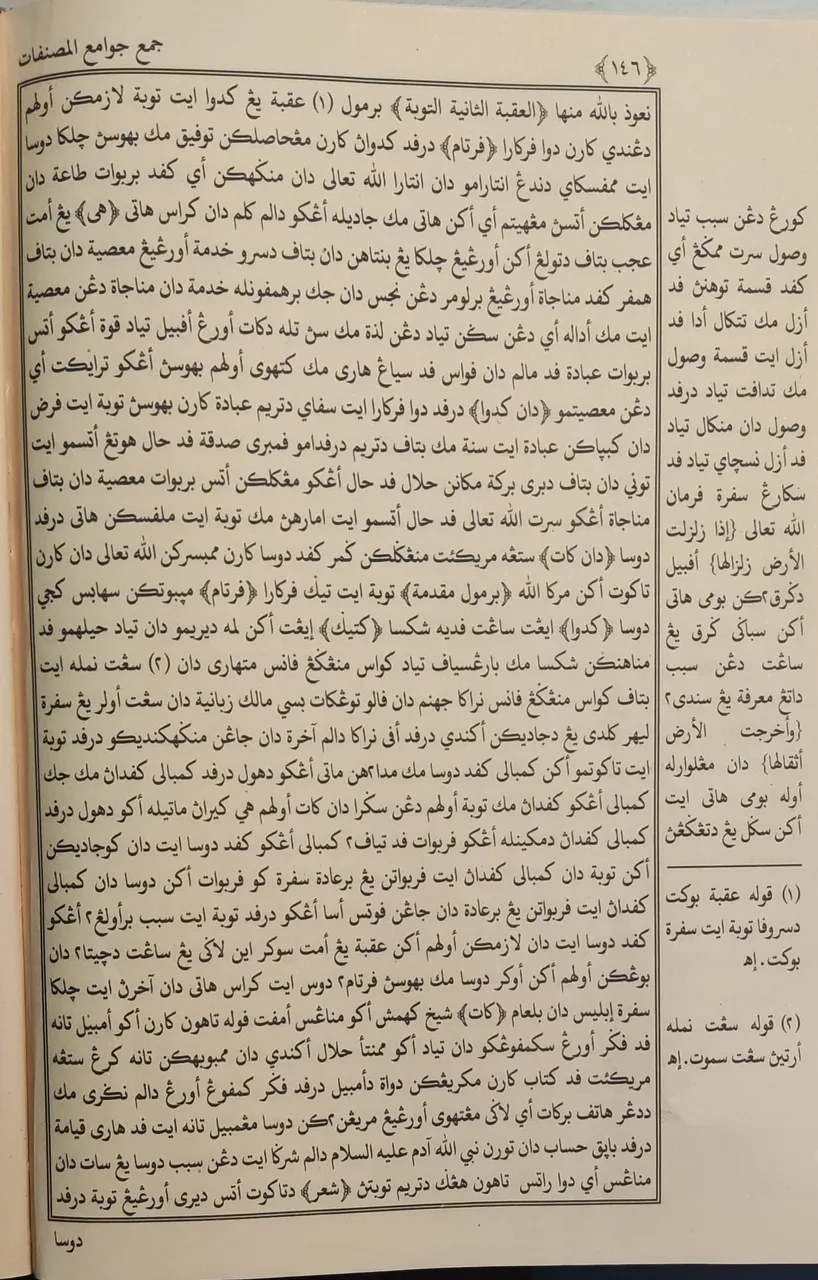 جمع جوامع المصنفات
﴿١٤٦﴾
نعوذ بالله منها ﴿العقبة الثانية التوبة﴾ برمول (١) عقبة يڠ كدوا ايت توبة لازمكن أولهم
دڠندي كارن دوا فركارا ﴿فرتام﴾ درفد كدوان كارن مڠحاصلكن توفيق مك بهوسن چلكا دوسا
ايت ممفسكاي دندڠ انتارامو دان انتارا الله تعالى دان منكهكن أي كفد بربوات طاعة دان
مڠكلكن أتسن مڠهيتم أي أكن هاتي مك جاديله أڠكو دالم كلم دان كراس هاتي ﴿هى﴾ يڠ أمت
عجب بتاف دتولڠ أكن أورڠيڠ چلكا يڠ بنتاهن دان بتاف دسرو خدمة أورڠيڠ معصية دان بتاف
همفر كفد مناجاة أورڠيڠ برلومر دڠن نجس دان جك برهمفونله خدمة دان مناجاة دڠن معصية
ايت مك أداله أي دڠن سكن تياد دڠن لذة مك سن تله دكات أورڠ أفبيل تياد قوة أڠكو أتس
بربوات عبادة فد مالم دان فواس فد سياڠ هاري مك كتهوي أولهم بهوسن أڠكو ترايكت أي
دڠن معصيتمو ﴿دان كدوا﴾ درفد دوا فركارا ايت سفاي دتريم عبادة كارن بهوسن توبة ايت فرض
دان كبياكن عبادة ايت سنة مك بتاف دتريم درفدامو فمبري صدقة فد حال هوتڠ أتسمو ايت
توني دان بتاف دبري بركة مكانن حلال فد حال أڠكو مڠكلكن أتس بربوات معصية دان بتاف
مناجاة أڠكو سرت الله تعالى فد حال أتسمو ايت امارهن مك توبة ايت ملفسكن هاتي درفد
دوسا ﴿دان كات﴾ ستڠه مريكئت منڠكلكن كمر كفد دوسا كارن ممبسركن الله تعالى دان كارن
تاكوت أكن مركا الله ﴿برمول مقدمة﴾ توبة ايت تيݢ فركارا ﴿فرتام﴾ ميبوتكن سهابس كجي
دوسا ﴿كدوا﴾ ايڠت ساڠت فديه شكسا ﴿كتيݢ﴾ إيڠت أكن لمه ديريمو دان تياد حيلهمو فد
مناهنكن شكسا مك بارڠسياف تياد كواس منڠݢڠ فانس متهاري دان (٢) سڠت نمله ايت
بتاف كواس منڠݢڠ فانس نراكا جهنم دان فالو توڠكات بسي مالك زبانية دان سڠت أولر يڠ سفرة
ليهر كلدي يڠ دجاديكن أكندي درفد أفي نراكا دالم آخرة دان جاڠن منݢهكنديكو درفد توبة
ايت تاكوتمو أكن كمبالي كفد دوسا مك مدا٢هن ماتي أڠكو دهول درفد كمبالي كفدان مك جك
كمبالي أڠكو كفدان مك توبة أولهم دڠن سكرا دان كات أولهم هي كيران ماتيله أكو دهول درفد
كمبالي كفدان دمكينله أڠكو فربوات فد تياف٢ كمبالي أڠكو كفد دوسا ايت دان كوجاديكن
أكن توبة دان كمبالي كفدان ايت فربواتن يڠ برعادة سفرة كو فربوات أكن دوسا دان كمبالي
كفدان ايت فربواتن يڠ برعادة دان جاڠن فوتس أسا أڠكو درفد توبة ايت سبب برأولڠ٢ أڠكو
كفد دوسا ايت دان لازمكن أولهم أكن عقبة يڠ أمت سوكر اين لاݢي يڠ ساڠت دچيتا٢ دان
بوڠكن أولهم أكن أوكر دوسا مك بهوسن فرتام٢ دوس ايت كراس هاتي دان آخرن ايت چلكا
سفرة إبليس دان بلعام ﴿كات﴾ شيخ كهمش أكو مناڠس أمفت فوله تاهون كارن أكو أمبيل تانه
فد فكر أورڠ سكمفوڠكو دان تياد أكو ممنتأ حلال أكندي دان ممبوبهكن تانه كرڠ ستڠه
مريكئت فد كتاب كارن مكريڠكن دواة دأمبيل درفد فكر كمفوڠ أورڠ دالم نكري مك
ددڠر هاتف بركات أي لاݢي مڠتهوي أورڠيڠ مريڠن٢كن دوسا مڠمبيل تانه ايت فد هاري قيامة
درفد بايق حساب دان تورن نبي الله آدم عليه السلام دالم شرݢا ايت دڠن سبب دوسا يڠ سات دان
مناڠس أي دوا راتس تاهون هڠݢ دتريم توبتن ﴿شعر﴾ دتاكوت أتس ديري أورڠيڠ توبة درفد
دوسا
كورڠ دڠن سبب تياد
وصول سرت ممكڠ أي
كفد قسمة توهنن فد
أزل مك تتكال أدا فد
أزل ايت قسمة وصول
مك تدافت تياد درفد
وصول دان منكال تياد
فد أزل نسچاي تياد فد
سكارڠ سفرة فرمان
الله تعالى {إذا زلزلت
الأرض زلزالها} أفبيل
دكرق٢كن بومي هاتي
أكن سباݢي كرق يڠ
ساڠت دڠن سبب
داتڠ معرفة يڠ سندي٢
{وأخرجت الأرض
أثقالها} دان مڠلوارله
أوله بومي هاتي ايت
أكن سكل يڠ دتڠكڠن
(١) قوله عقبة بوكت
دسروفا توبة ايت سفرة
بوكت. إه
(٢) قوله سڠت نمله
أرتين سڠت سموت. إه